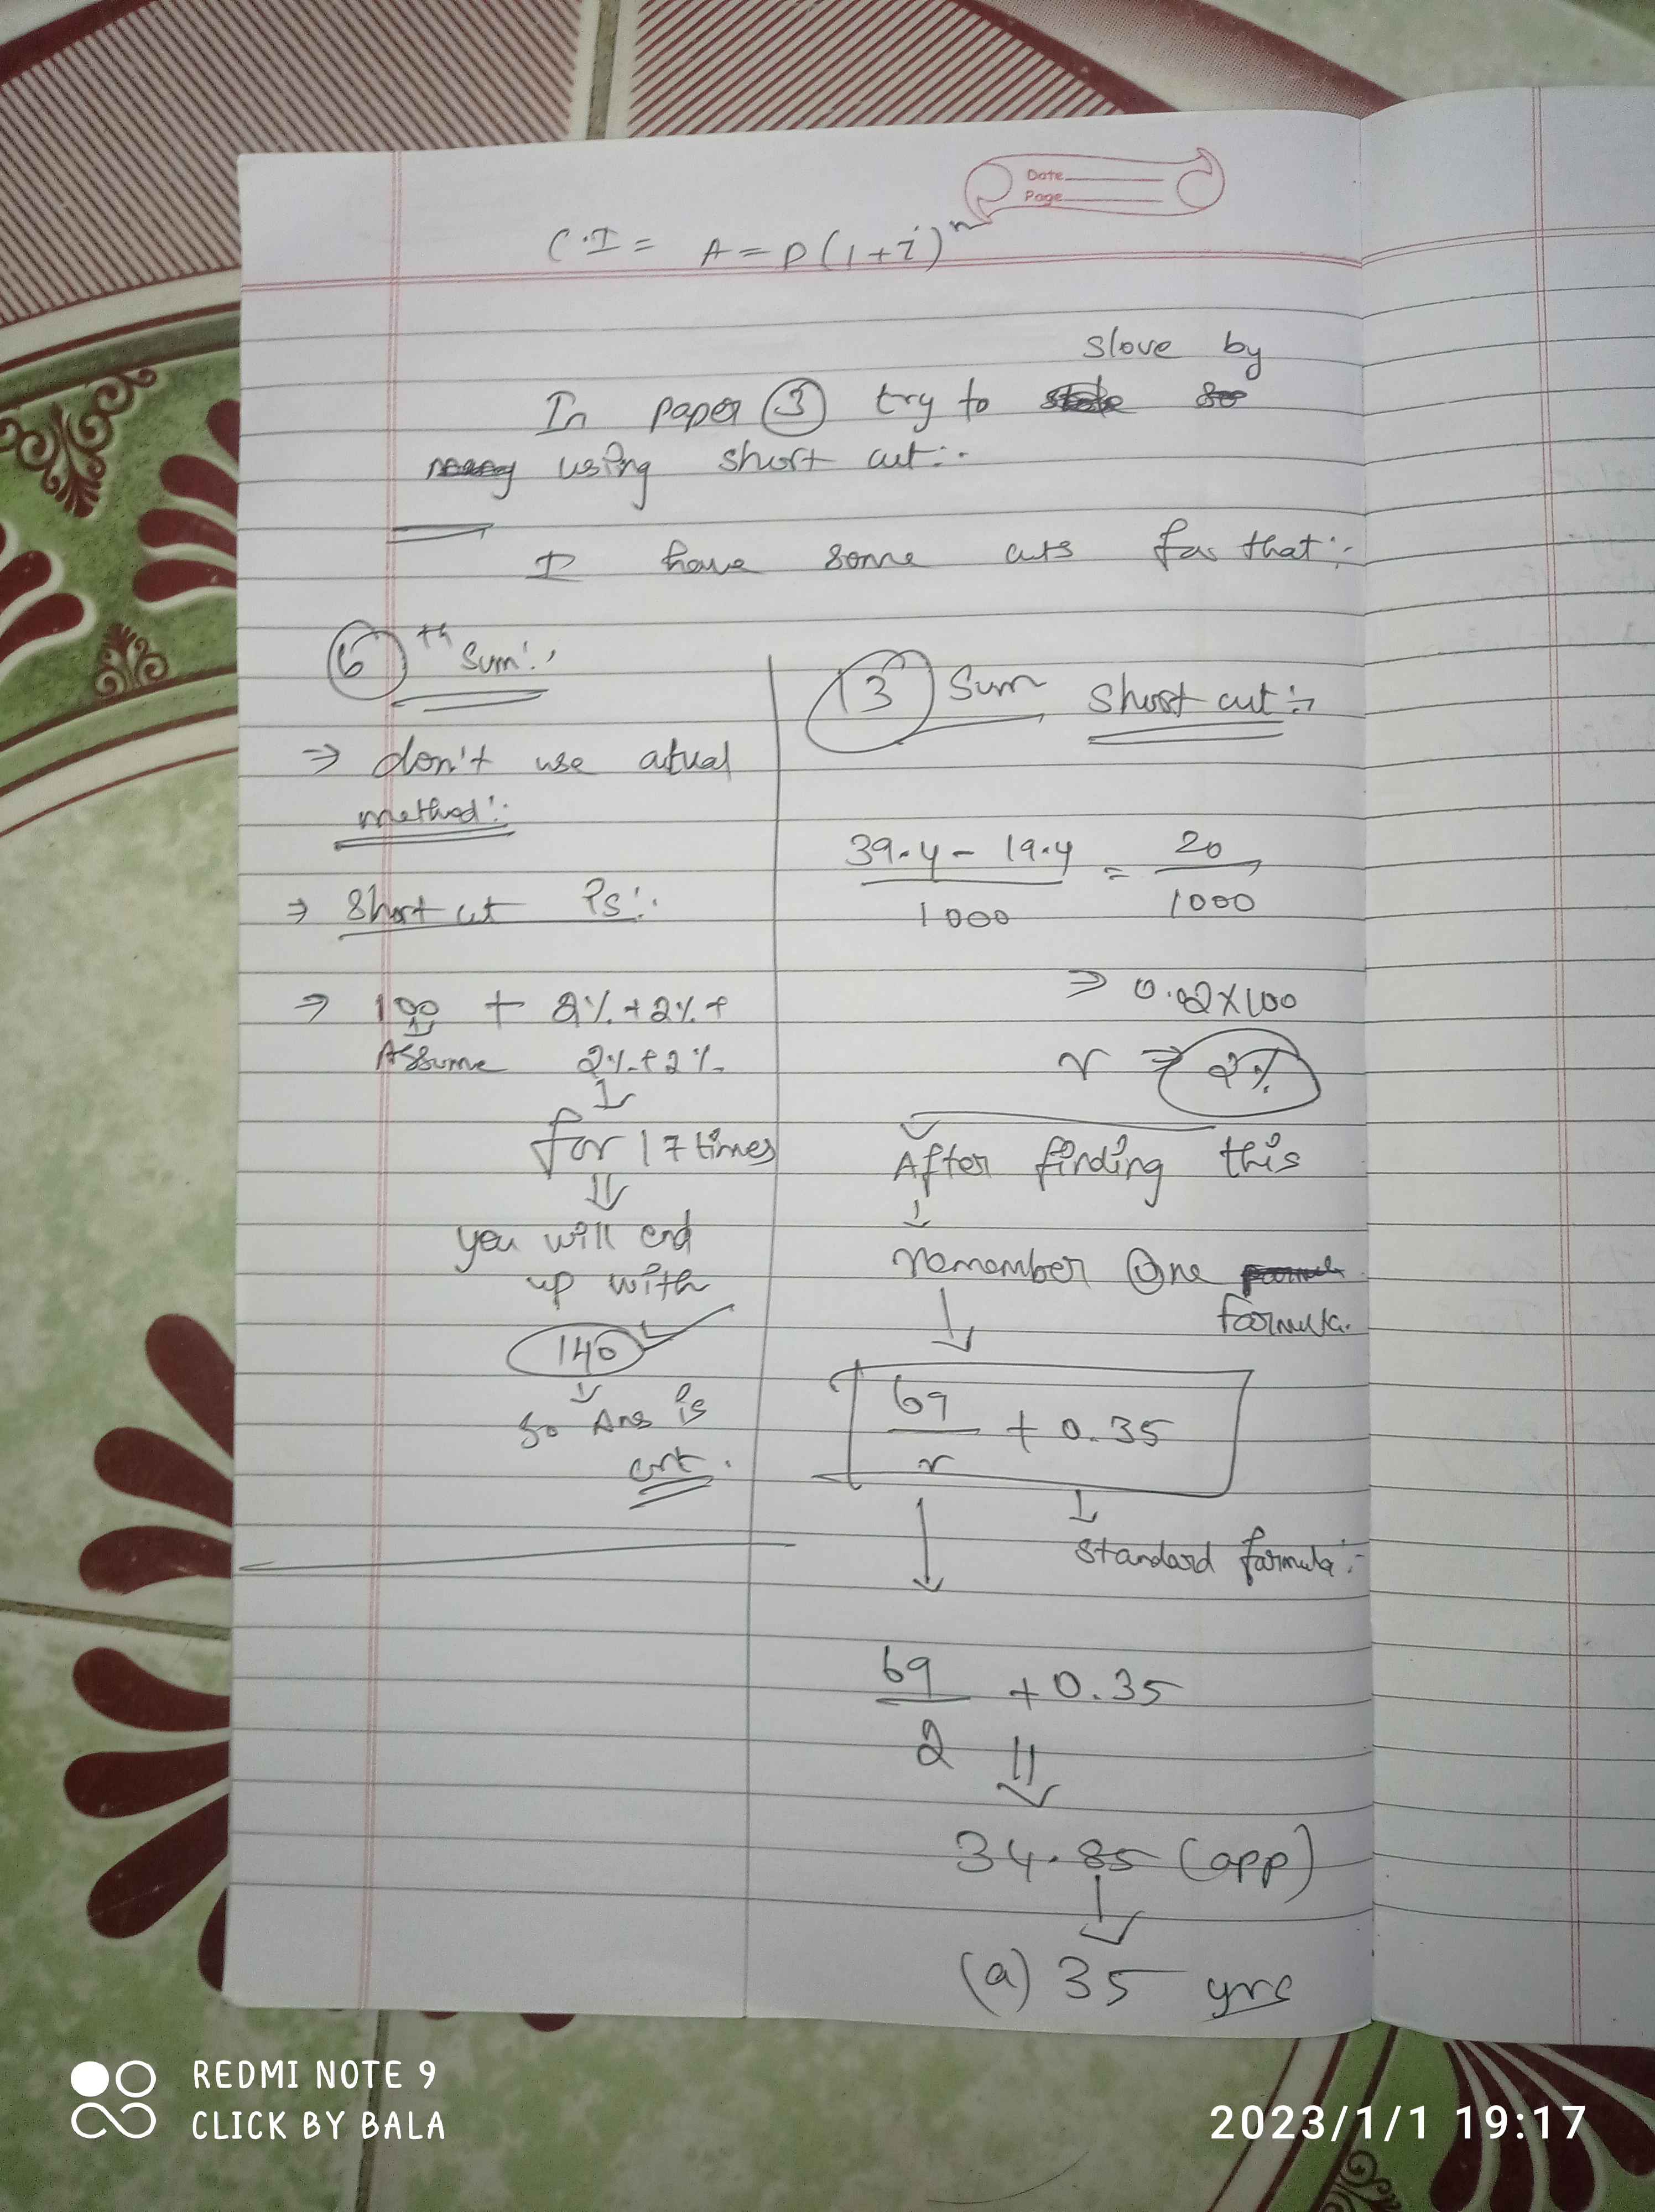 Date
Page
C.I = A = P(1+i)^n
slove by
In paper ③ try to
using short cut:-
I have some cuts for that:-
6th Sum:-
⇒ don't use actual
method:-
⇒ Short cut is:-
⇒ 100 + 2% + 2% +
Assume 2% + 2%
for 17 times
you will end
up with
140
So Ans is
crt.
13 Sum Short cut:-
39.4 - 19.4 / 1000 = 20 / 1000
⇒ 0.02 X 100
r ⇒ 2%
After finding this
remember One
formula.
69 / r + 0.35
standard formula:-
69 / 2 + 0.35
34.85 (app)
(a) 35 yrs
REDMI NOTE 9
CLICK BY BALA
2023/1/1 19:17